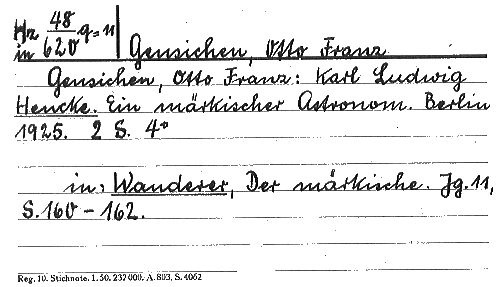 Hz 48 q=11
in 620 Gensichen, Otto Franz
Gensichen, Otto Franz: Karl Ludwig
Hencke. Ein märkischer Astronom. Berlin
1925. 2 S. 4°
in: Wanderer, Der märkische. Jg. 11,
S. 160-162.
Reg. 10. Stichnote. 1. 50. 237000. A. 803, S. 4062